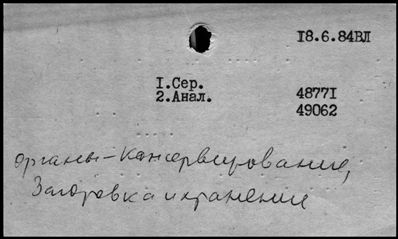 18.6.84ВЛ
1.Сер.
2.Анал.
48771
49062
органы-консервирование,
Заготовка и хранение